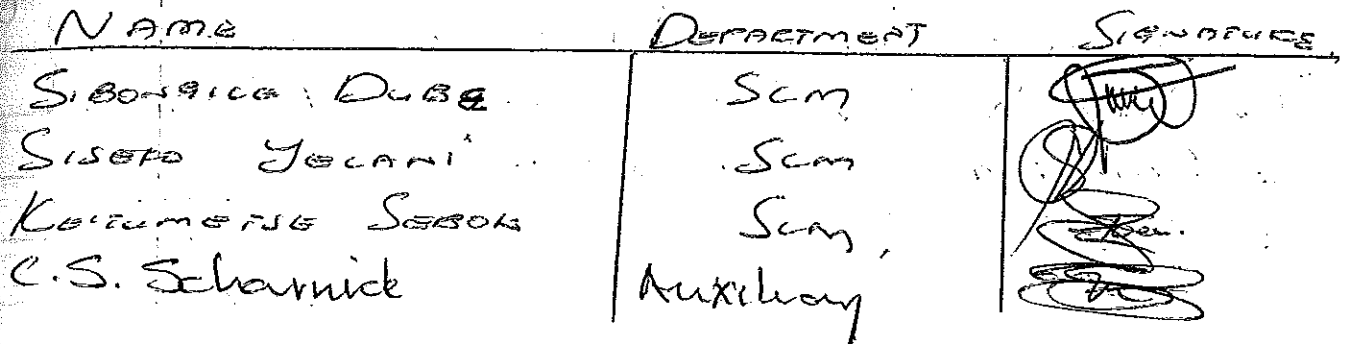 NAME DEPARTMENT SIGNATURE
SIBONGILE DUBE SCM
SISEKO YELANI SCM
KEITUMETSE SEBOLA SCM
C.S. Scharnick Auxiliary